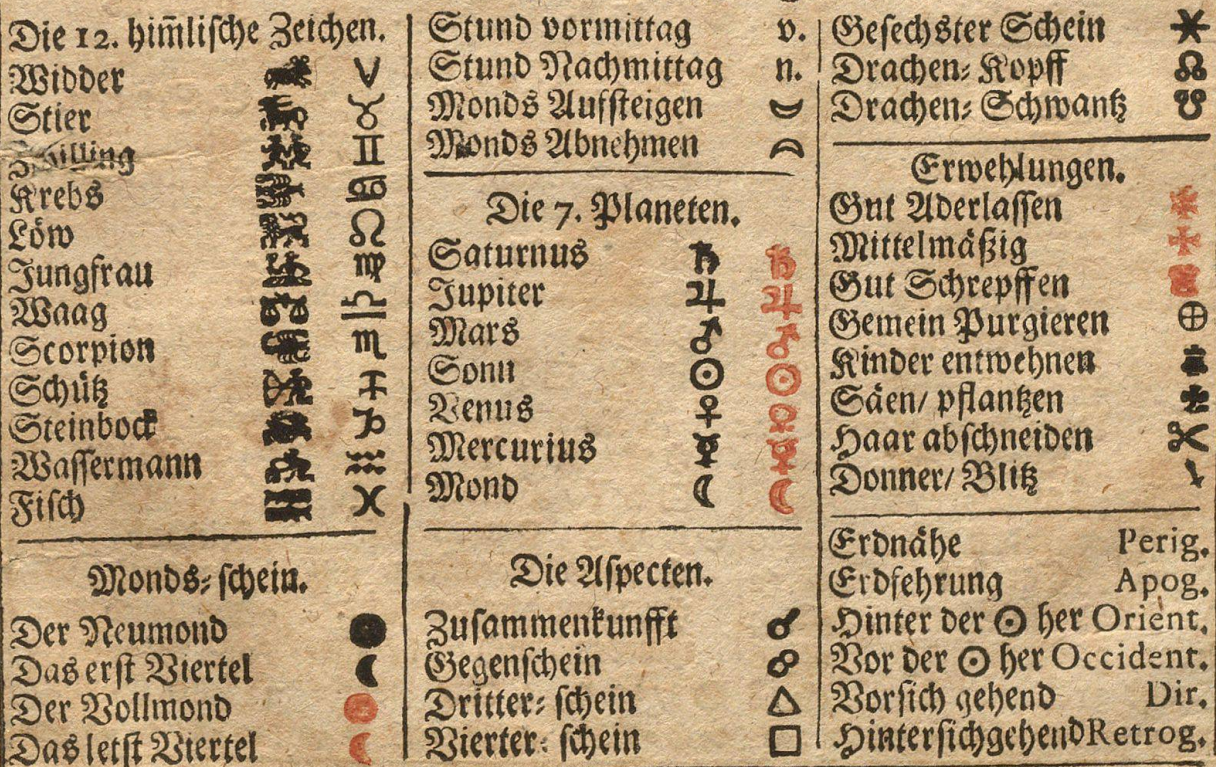 Die 12. him̃lische Zeichen.
Widder ♈
Stier ♉
Zwilling ♊
Krebs ♋
Löw ♌
Jungfrau ♍
Waag ♎
Scorpion ♏
Schütz ♐
Steinbock ♑
Wassermann ♒
Fisch ♓
Monds-schein.
Der Neumond
Das erst Viertel
Der Vollmond
Das letst Viertel
Stund vormittag v.
Stund Nachmittag n.
Monds Aufsteigen
Monds Abnehmen
Die 7. Planeten.
Saturnus ♄ ♄
Jupiter ♃ ♃
Mars ♂ ♂
Sonn ☉ ☉
Venus ♀ ♀
Mercurius ☿ ☿
Mond ☾ ☾
Die Aspecten.
Zusammenkunfft ☌
Gegenschein ☍
Dritter-schein △
Vierter-schein □
Gesechster Schein ⚹
Drachen-Kopff ☊
Drachen-Schwantz ☋
Erwehlungen.
Gut Aderlassen
Mittelmäßig
Gut Schrepffen
Gemein Purgieren ⊕
Kinder entwehnen
Säen/ pflantzen
Haar abschneiden
Donner/ Blitz
Erdnähe Perig.
Erdfehrung Apog.
Hinter der ☉ her Orient.
Vor der ☉ her Occident.
Vorsich gehend Dir.
Hintersichgehend Retrog.